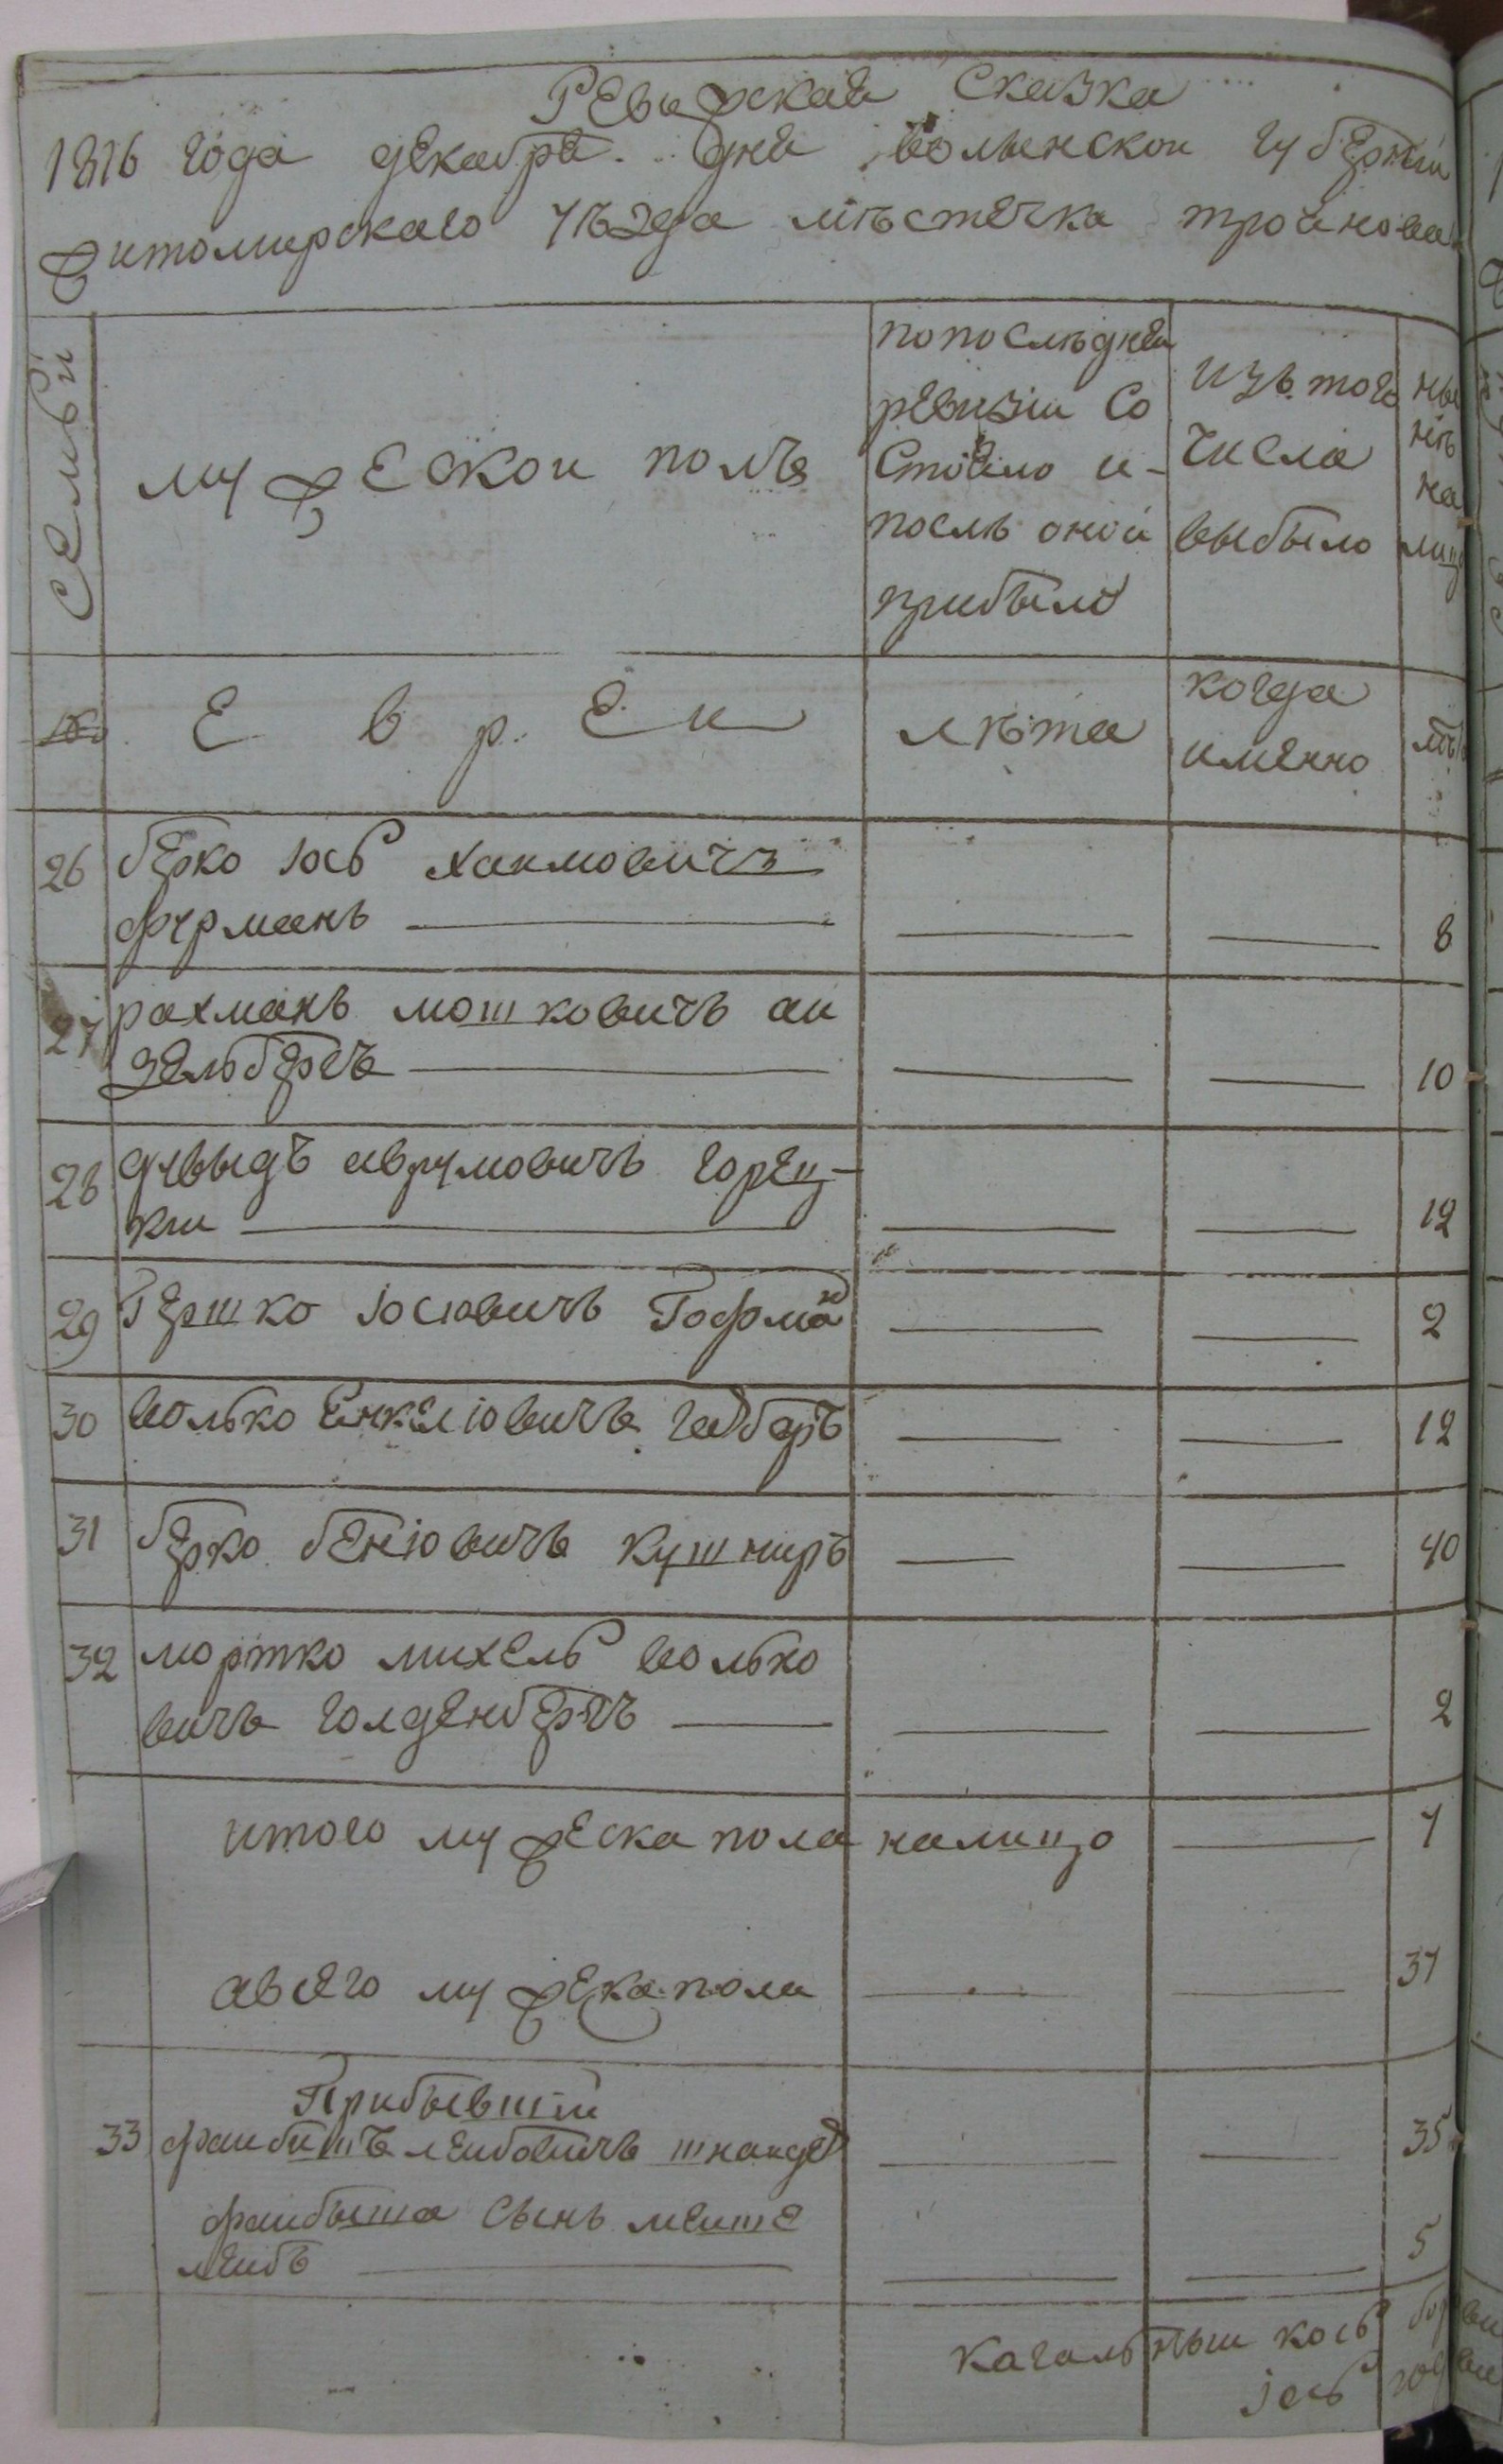 Ревижская Сказка
1816 года декабря .. дня волынской губернии
житомирского уѣзда мѣстечка троянова
Семьи
мужеской полъ
попослѣдней
ревизии Со
Стояло и-
послѣ оной
прибыло
изъ того
числа
выбыло
ны
нѣ
на
лицо
Е в р е и
лѣта
когда
именно
лѣ
26 берко іось хаимовичъ
фурманъ — — — 8
27 рахманъ мошковичъ аи
зельбергъ — — — 10
28 дувыдъ аврумовичъ горец-
кии — — — 12
29 Гершко іосіовичъ Гофман — — 2
30 волько Енкеліовичъ гарбаръ — — 12
31 берко беніовичъ кушниръ — — 40
32 мортко михель волько
вичъ голденбергъ — — — 2
итого мужеска пола налицо — 7
авсего мужеска пола — — 37
Прибывшии
33 фаибишъ леибовичъ шнаидер — — 35
фаибыша Сынъ меите
леибъ — — — 5
кагальныи
іось